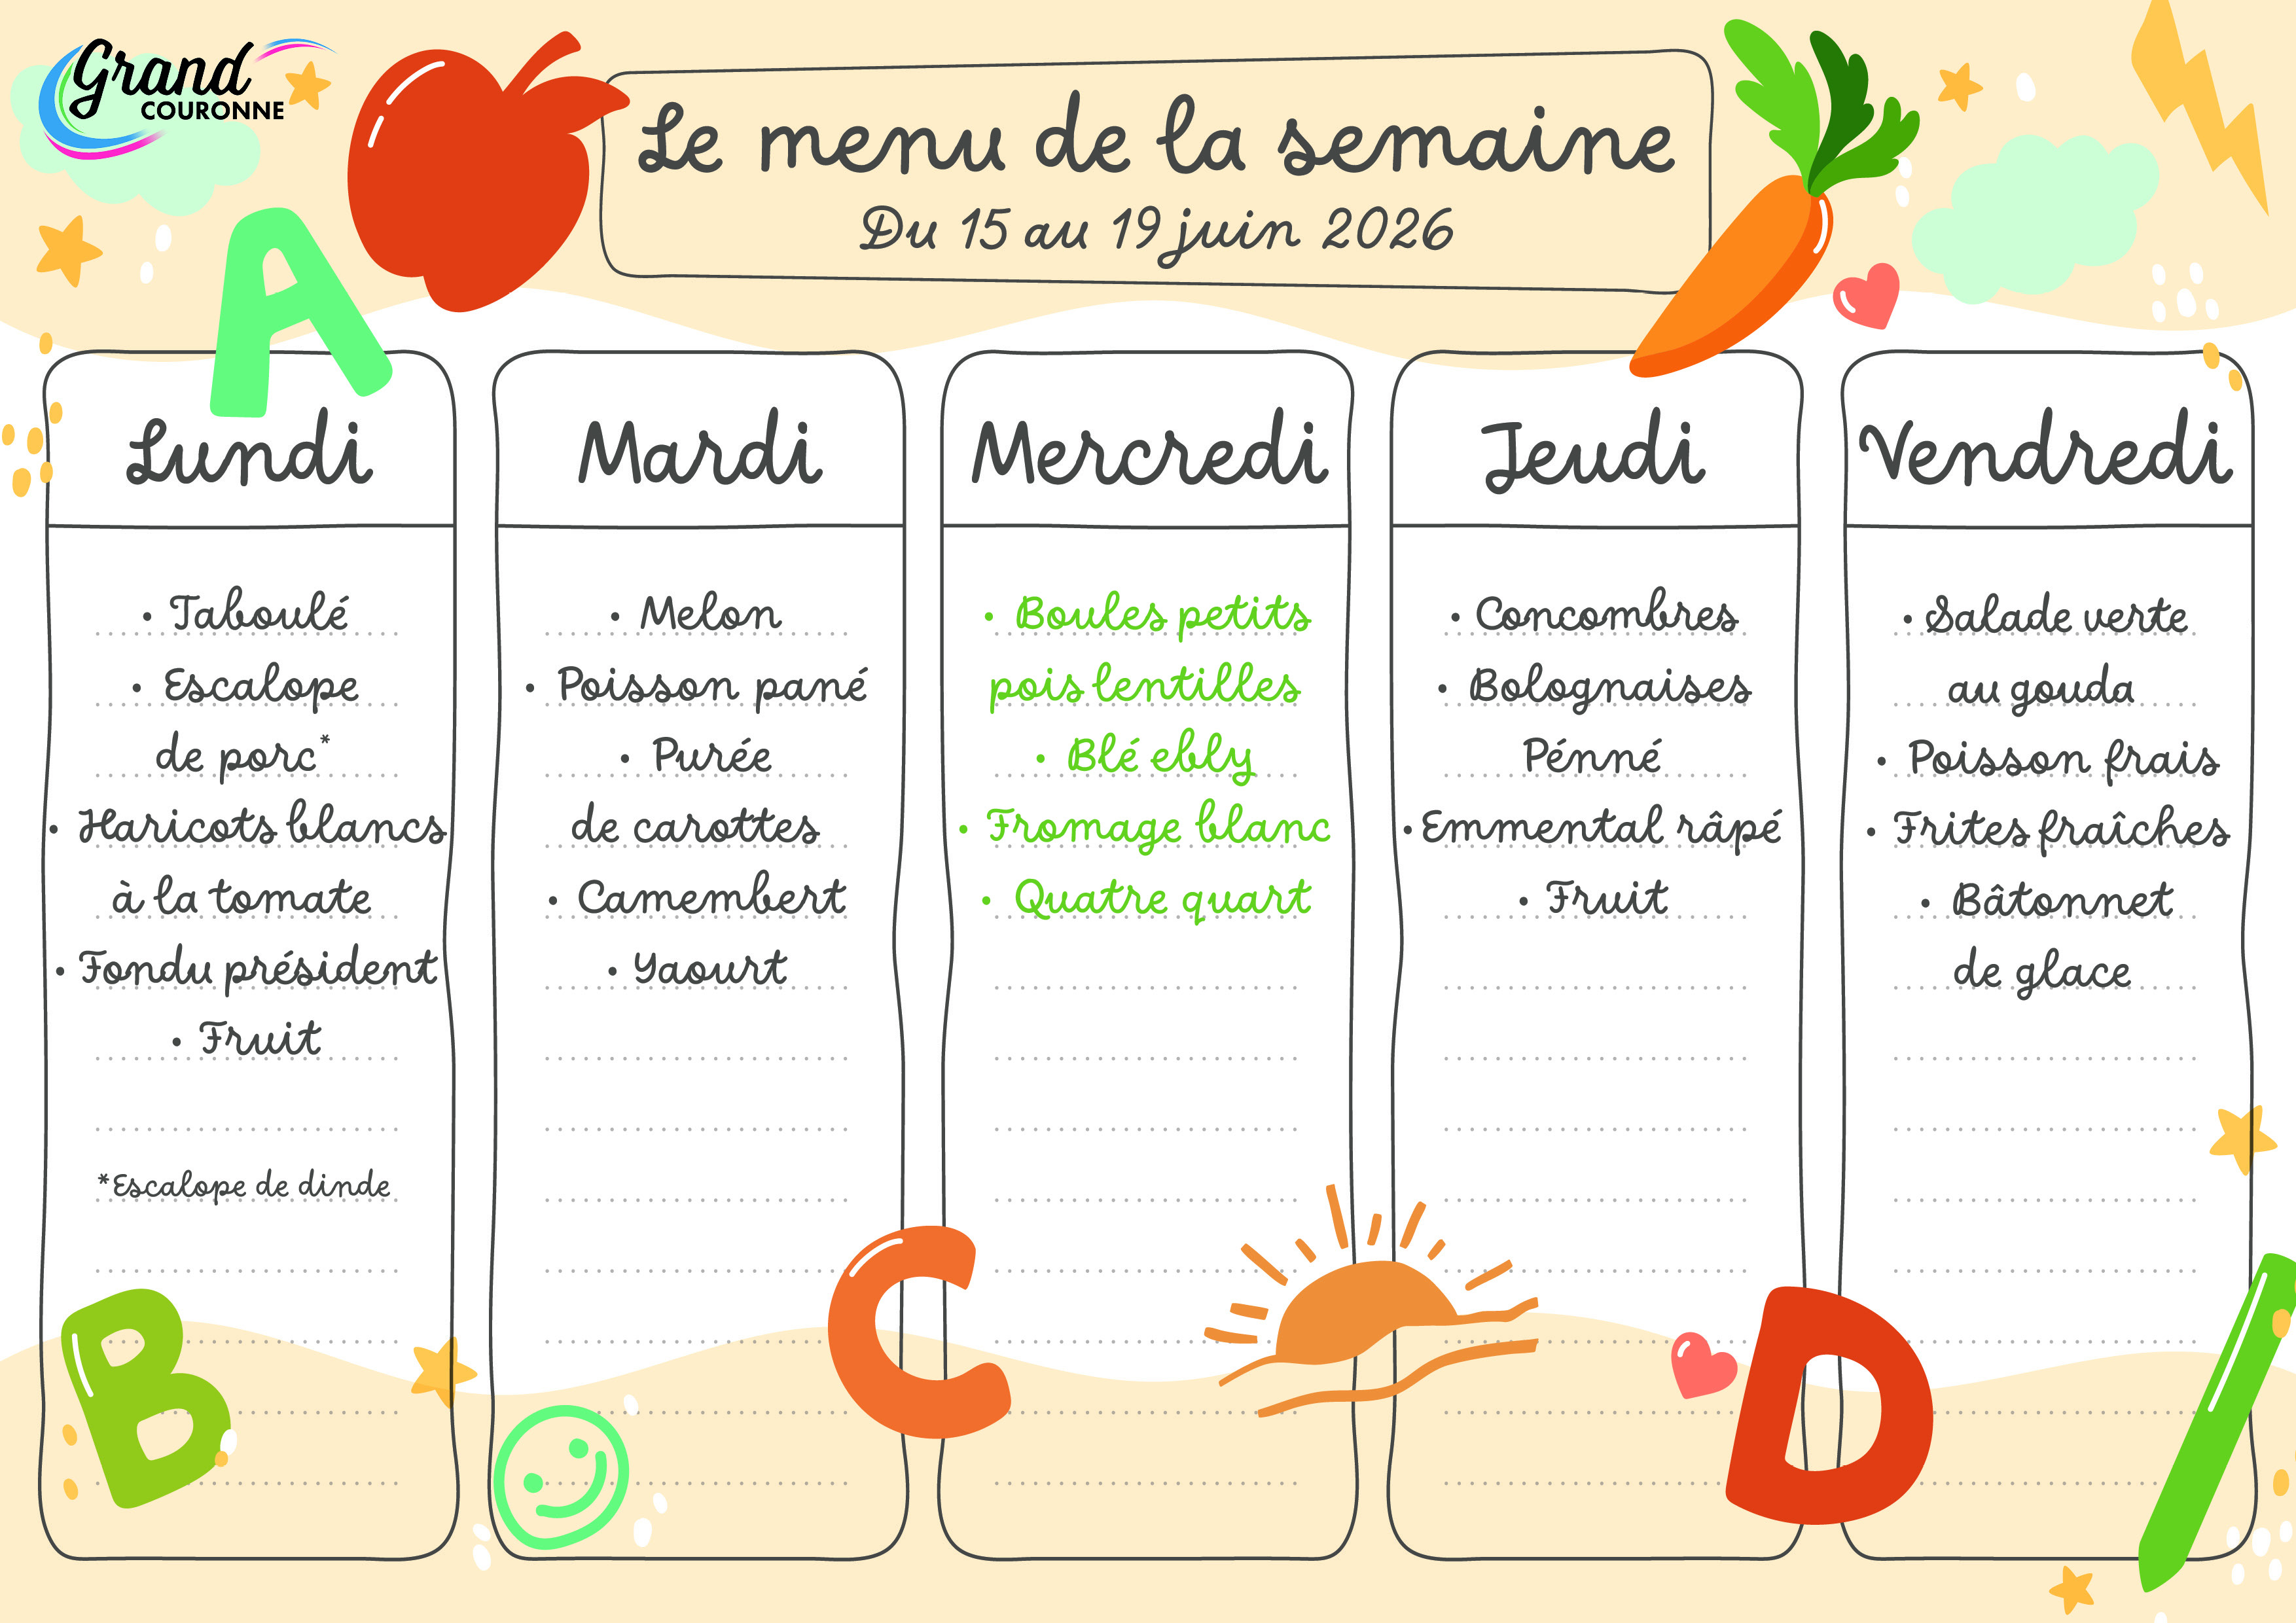 Grand
COURONNE
Le menu de la semaine
Du 15 au 19 juin 2026
Lundi
• Taboulé
• Escalope
de porc*
• Haricots blancs
à la tomate
• Fondu président
• Fruit
*Escalope de dinde
Mardi
• Melon
• Poisson pané
• Purée
de carottes
• Camembert
• Yaourt
Mercredi
• Boules petits
pois lentilles
• Blé ebly
• Fromage blanc
• Quatre quart
Jeudi
• Concombres
• Bolognaises
Pénné
• Emmental râpé
• Fruit
Vendredi
• Salade verte
au gouda
• Poisson frais
• Frites fraîches
• Bâtonnet
de glace
A
B
C
D